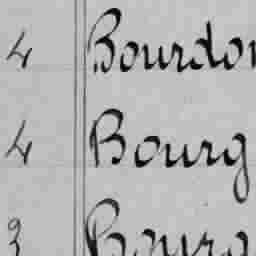 4 Bourdon
4 Bourg
3 Bourg